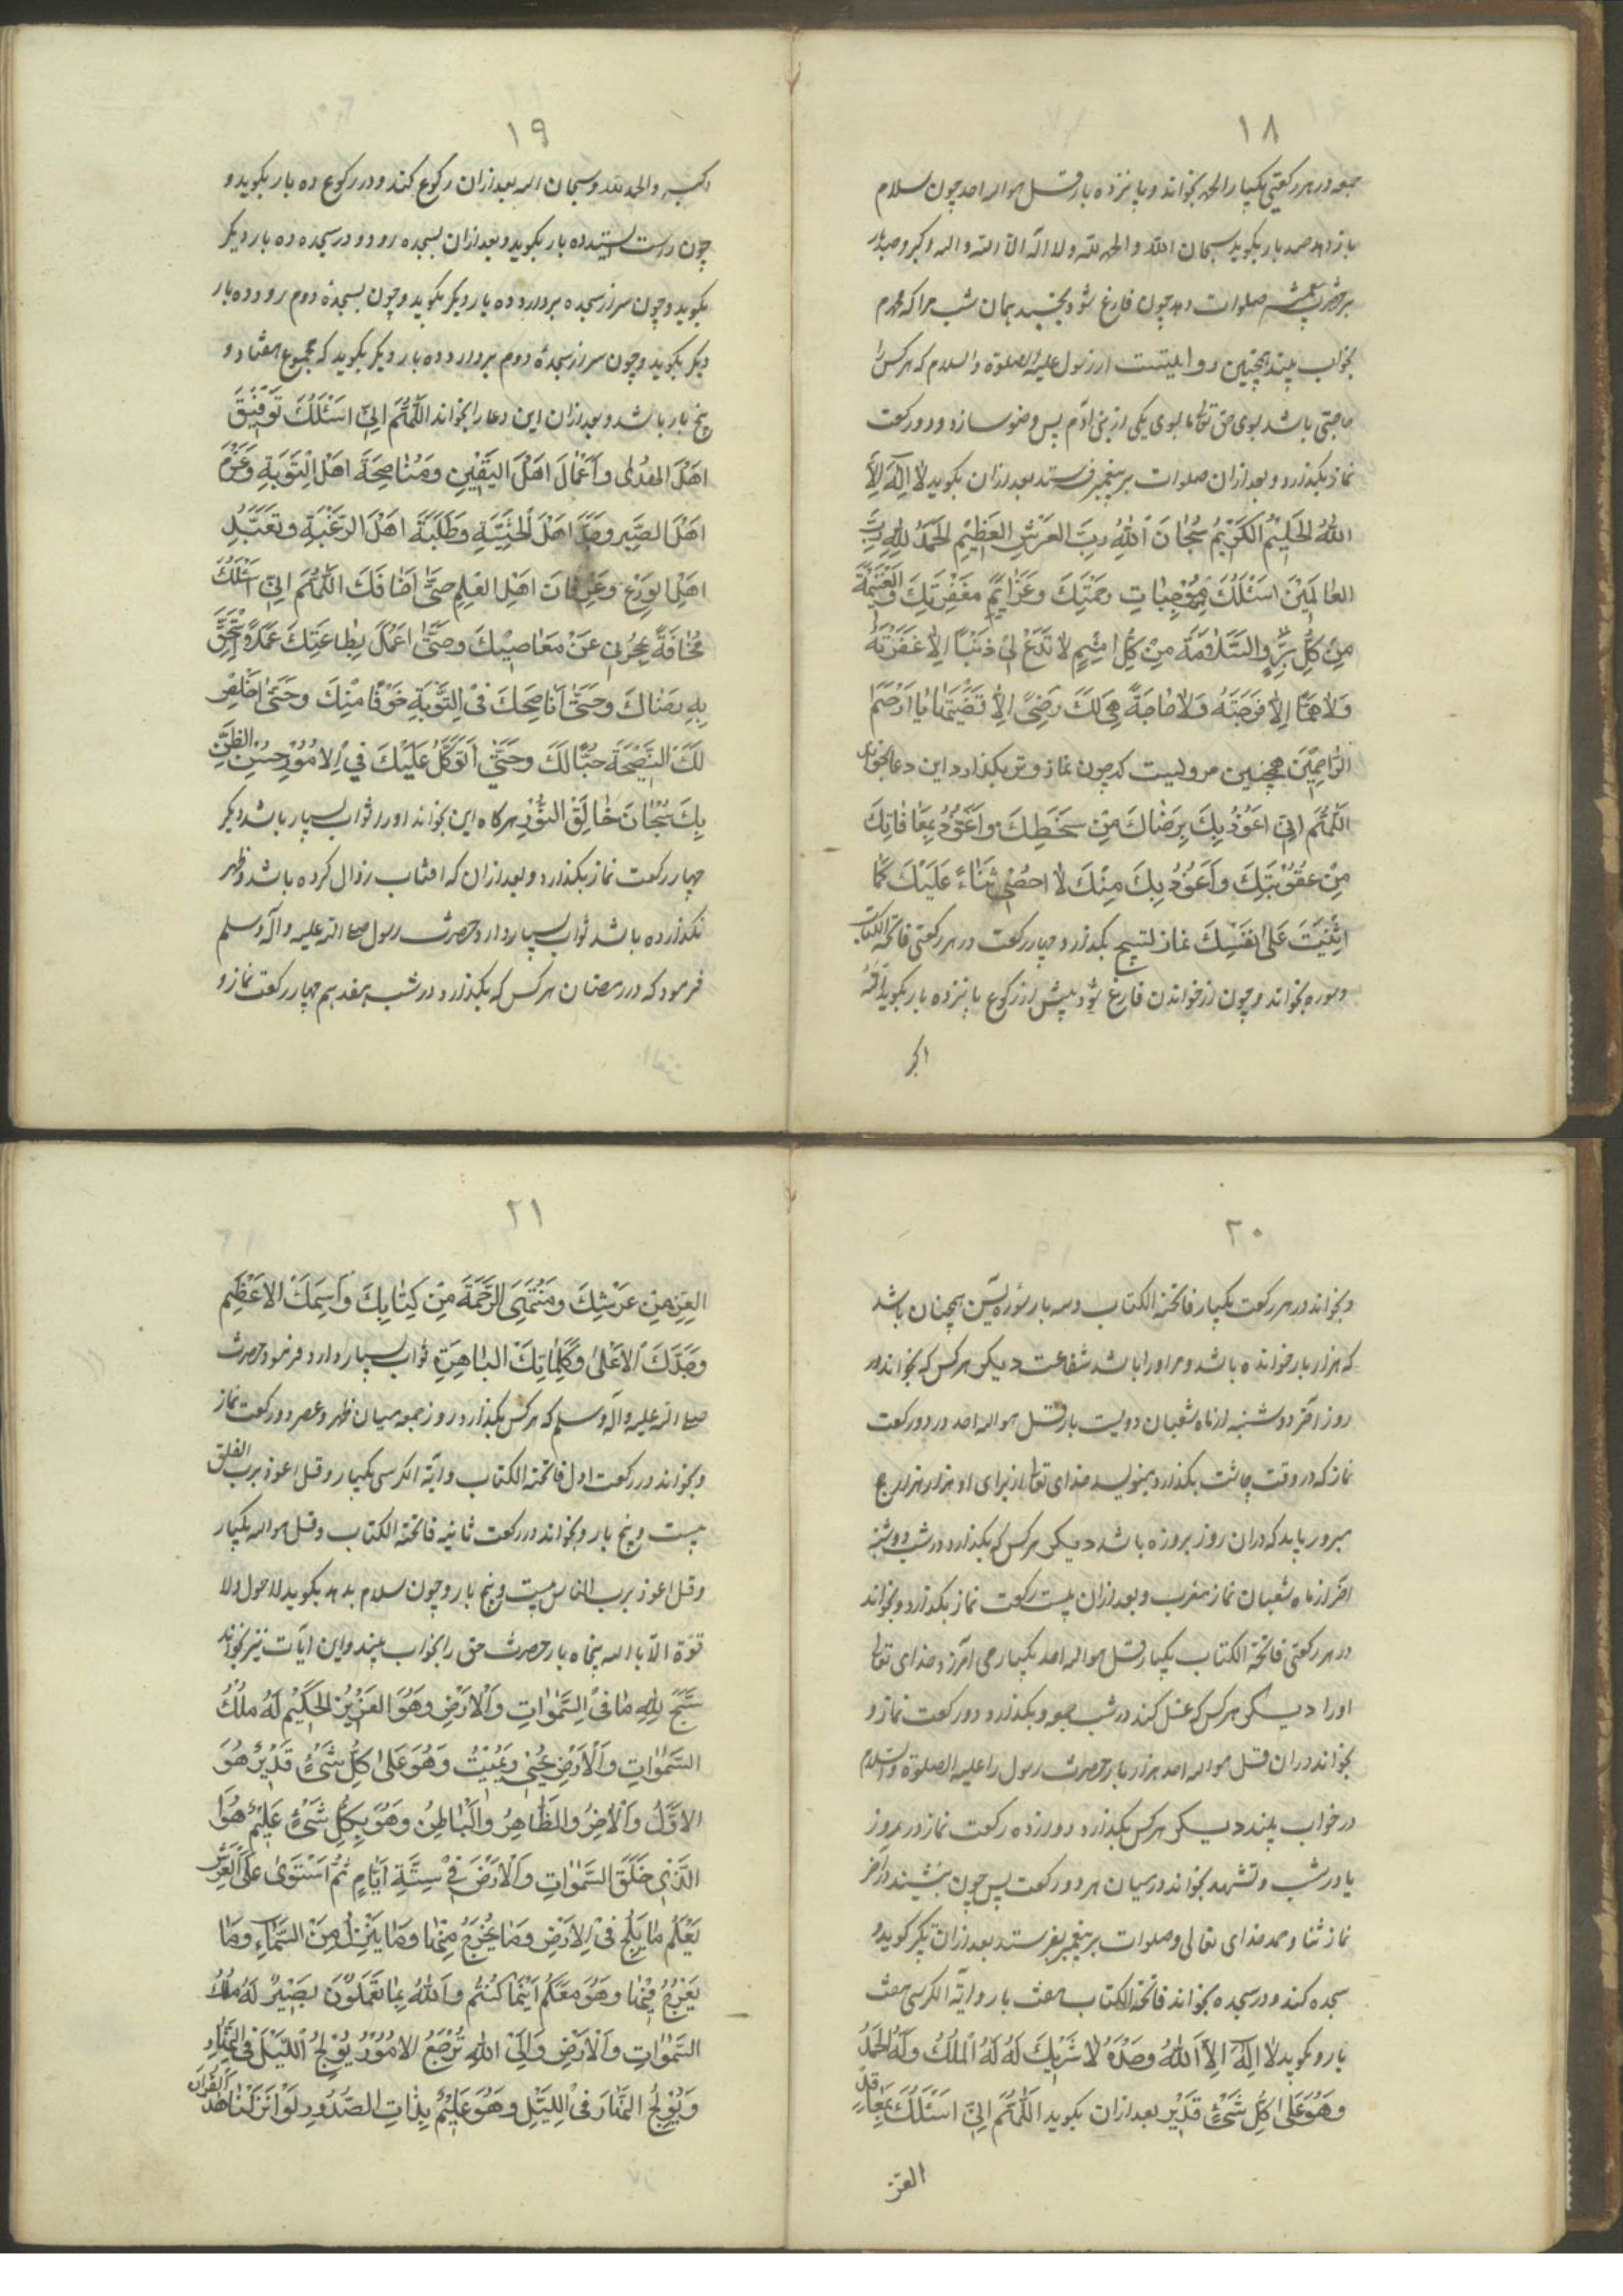 ۱۸
جمعه در هر رکعتی یکبار الحمد بخواند و پانزده بار قل هو الله احد چون سلام
باز دهد صد بار بکوید سبحان الله و الحمد لله و لا اله الا الله و الله اکبر و صد بار
بر حضرت صلوات دهد چون فارغ شود بخسبد همان شب مرا که محمدم
بخواب بیند همچنین روایتست از رسول علیه الصلوة و السلام که هر کس را
حاجتی باشد بسوی حق تعالی یا بسوی یکی از بنی آدم پس وضو سازد و دو رکعت
نماز بکذارد و بعد ازان صلوات بر پیغمبر فرستد بعد ازان بکوید لا اله الا
الله الحلیم الکریم سبحان الله رب العرش العظیم الحمد لله رب
العالمین اسئلک موجبات رحمتک و عزائم مغفرتک و الغنیمة
من کل بر و السلامة من کل اثم لا تدع لی ذنبا الا غفرته
و لا هما الا فرجته و لا حاجة هی لک رضی الا قضیتها یا ارحم
الراحمین همچنین مرویست که چون نماز وتر بکذارد این دعا بخواند
اللهم انی اعوذ بک برضاک من سخطک و اعوذ بمعافاتک
من عقوبتک و اعوذ بک منک لا احصی ثناء علیک کما
اثنیت علی نفسک نماز تسبیح بکذارد چهار رکعت در هر رکعتی فاتحة الکتاب
و سوره بخواند و چون از خواندن فارغ شود پیش از رکوع پانزده بار بکوید الله
اکبر
۱۹
اکبر و الحمد لله و سبحان الله بعد ازان رکوع کند و در رکوع ده بار بکوید و
چون راست ایستد ده بار بکوید و بعد ازان بسجده رود و در سجده ده بار دیکر
بکوید و چون سر از سجده بردارد ده بار دیکر بکوید و چون بسجدهٔ دوم رود ده بار
دیکر بکوید و چون سر از سجدهٔ دوم بردارد ده بار دیکر بکوید که مجموع هفتاد و
پنج بار باشد و بعد ازان این دعا را بخواند اللهم انی اسئلک توفیق
اهل الهدی و اعمال اهل الیقین و مناصحة اهل التوبة و عزم
اهل الصبر و جد اهل الخشیة و طلبة اهل الرغبة و تعبد
اهل الورع و عرفان اهل العلم حتی اخافک اللهم انی اسئلک
مخافة تحجزنی عن معاصیک و حتی اعمل بطاعتک عملا استحق
به رضاک و حتی اناصحک فی التوبة خوفا منک و حتی اخلص
لک النصیحة حبا لک و حتی اتوکل علیک فی الامور حسن الظن
بک سبحان خالق النور هرکاه این بخواند او را ثواب بسیار باشد دیکر
چهار رکعت نماز بکذارد و بعد ازان که افتاب زوال کرده باشد و ظهر
نکذارده باشد ثواب بسیار دارد حضرت رسول صلی الله علیه و آله وسلم
فرمود که در رمضان هر کس که بکذارد در شب هفدهم چهار رکعت نماز و
۲۰
و بخواند در هر رکعت یکبار فاتحة الکتاب و سه بار سورهٔ یس همچنان باشد
که هزار بار خوانده باشد و مر او را باشد شفاعت دیکر هر کس که بخواند در
روز آخر دوشنبه از ماه شعبان دویست بار قل هو الله احد در دو رکعت
نماز که در وقت چاشت بکذارد بنویسد خدای تعالی از برای او هزار هزار حج
مبرور باید که دران روز بروزه باشد دیکر هر کس که بکذارد در شب دوشنبه
آخر از ماه شعبان نماز مغرب و بعد ازان بیست رکعت نماز بکذارد و بخواند
در هر رکعتی فاتحة الکتاب یکبار و قل هو الله احد یکبار می آمرزد خدای تعالی
او را دیکر هر کس که غسل کند در شب جمعه و بکذارد دو رکعت نماز و
بخواند دران قل هو الله احد هزار بار حضرت رسول را علیه الصلوة والسلام
در خواب بیند دیکر هر کس بکذارد دوازده رکعت نماز در روز
یا در شب و تشهد بخواند در میان هر دو رکعت پس چون بنشیند در آخر
نماز ثنا و حمد خدای تعالی و صلوات بر پیغمبر بفرستد بعد ازان تکبر کوید و
سجده کند و در سجده بخواند فاتحة الکتاب هفت بار و ایة الکرسی هفت
بار و بکوید لا اله الا الله وحده لا شریک له له الملک و له الحمد
و هو علی کل شیء قدیر بعد ازان بکوید اللهم انی اسئلک بمعاقد
العز
۲۱
العز من عرشک و منتهی الرحمة من کتابک و اسمک الاعظم
و جدک الاعلی و کلماتک الباهرة ثواب بسیار دارد فرمود حضرت
صلی الله علیه و آله وسلم که هر کس بکذارد روز جمعه میان ظهر و عصر دو رکعت نماز
و بخواند در رکعت اول فاتحة الکتاب و ایة الکرسی یکبار و قل اعوذ برب الفلق
بیست و پنج بار و بخواند در رکعت ثانیه فاتحة الکتاب و قل هو الله یکبار
و قل اعوذ برب الناس بیست و پنج بار و چون سلام بدهد بکوید لا حول و لا
قوة الا بالله پنجاه بار حضرت حق را بخواب بیند و این آیات نیز بخواند
سبح لله ما فی السموات و الارض و هو العزیز الحکیم له ملک
السموات و الارض یحیی و یمیت و هو علی کل شیء قدیر هو
الاول و الاخر و الظاهر و الباطن و هو بکل شیء علیم هو
الذی خلق السموات و الارض فی ستة ایام ثم استوی علی العرش
یعلم ما یلج فی الارض و ما یخرج منها و ما ینزل من السماء و ما
یعرج فیها و هو معکم اینما کنتم و الله بما تعملون بصیر له ملک
السموات و الارض و الی الله ترجع الامور یولج اللیل فی النهار
و یولج النهار فی اللیل و هو علیم بذات الصدور لو انزلنا هذا القرآن